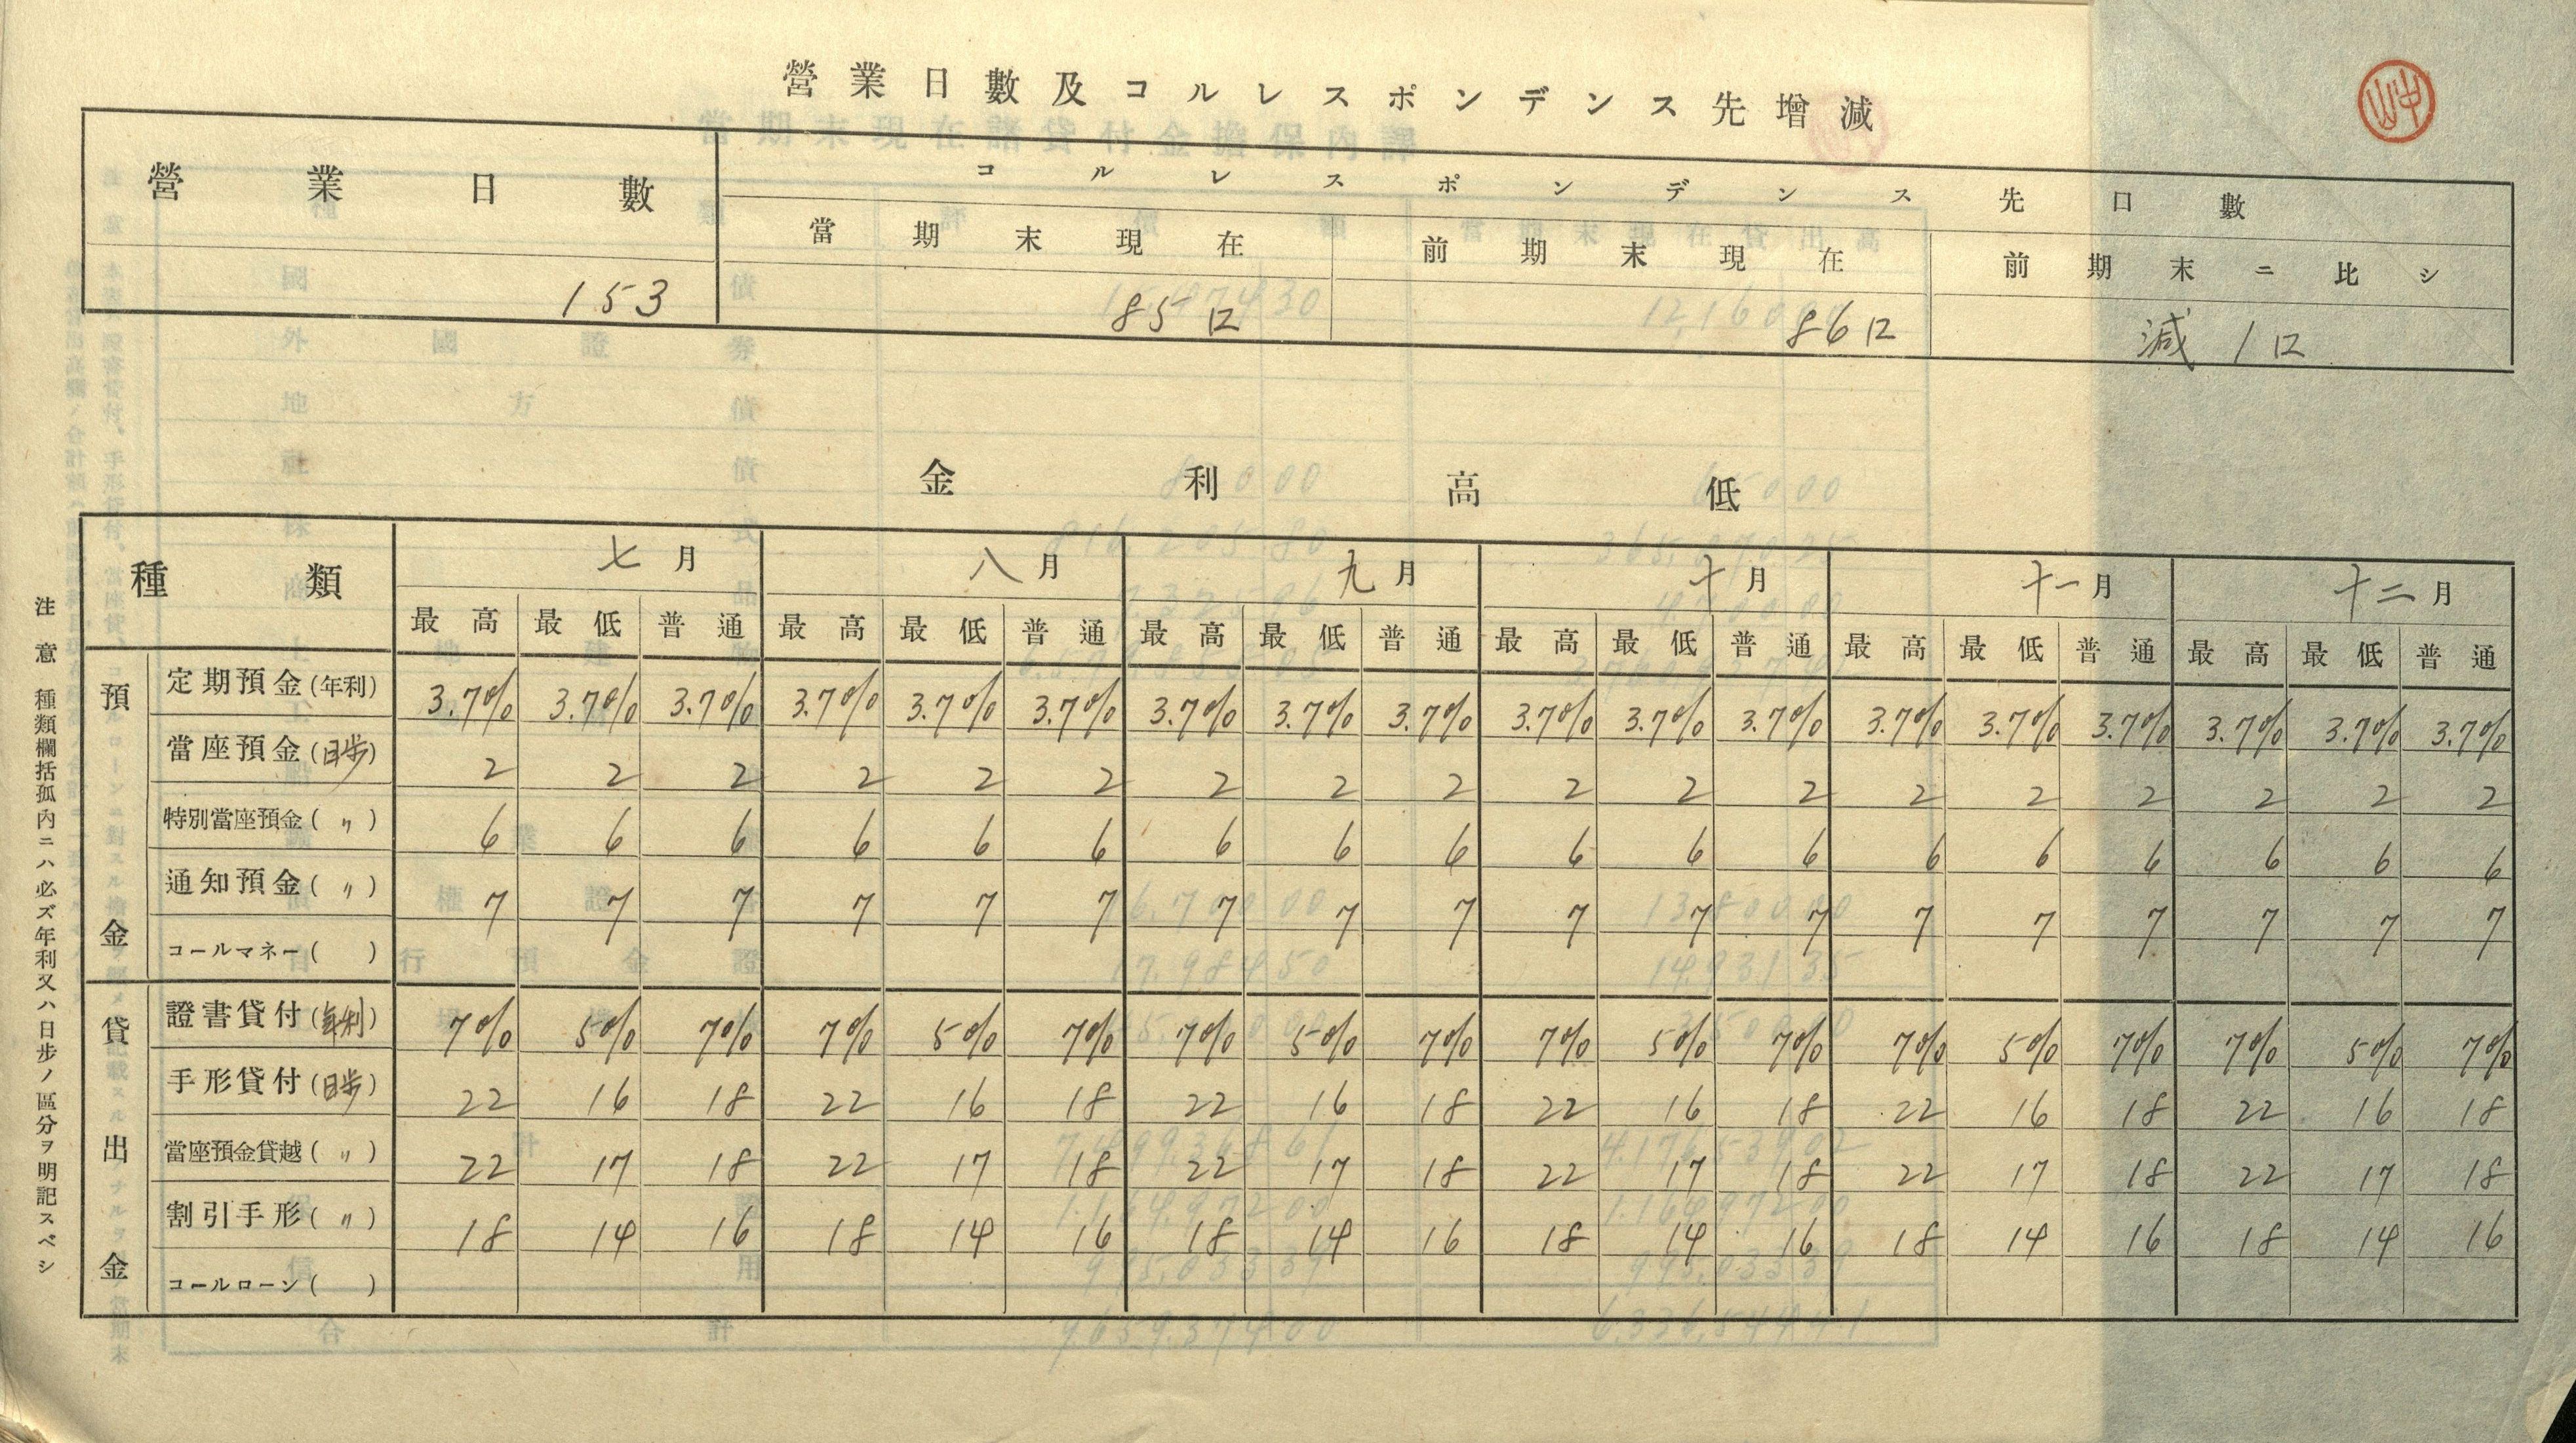 營業日數及コルレスポンデンス先增減
營業日數 コルレスポンデンス先口數
當期末現在 前期末現在 前期末ニ比シ
153 85口 86口 減1口
金利高低
種類 七月 八月 九月 十月 十一月 十二月
最高 最低 普通 最高 最低 普通 最高 最低 普通 最高 最低 普通 最高 最低 普通 最高 最低 普通
預金
定期預金(年利) 3.7% 3.7% 3.7% 3.7% 3.7% 3.7% 3.7% 3.7% 3.7% 3.7% 3.7% 3.7% 3.7% 3.7% 3.7% 3.7% 3.7% 3.7%
當座預金(日歩) 2 2 2 2 2 2 2 2 2 2 2 2 2 2 2 2 2 2
特別當座預金(〃) 6 6 6 6 6 6 6 6 6 6 6 6 6 6 6 6 6 6
通知預金(〃) 7 7 7 7 7 7 7 7 7 7 7 7 7 7 7 7 7 7
コールマネー( )
貸出金
證書貸付(年利) 7% 5% 7% 7% 5% 7% 7% 5% 7% 7% 5% 7% 7% 5% 7% 7% 5% 7%
手形貸付(日歩) 22 16 18 22 16 18 22 16 18 22 16 18 22 16 18 22 16 18
當座預金貸越(〃) 22 17 18 22 17 18 22 17 18 22 17 18 22 17 18 22 17 18
割引手形(〃) 18 14 16 18 14 16 18 14 16 18 14 16 18 14 16 18 14 16
コールローン( )
注意 種類欄括孤内ニハ必ズ年利又ハ日歩ノ區分ヲ明記スベシ